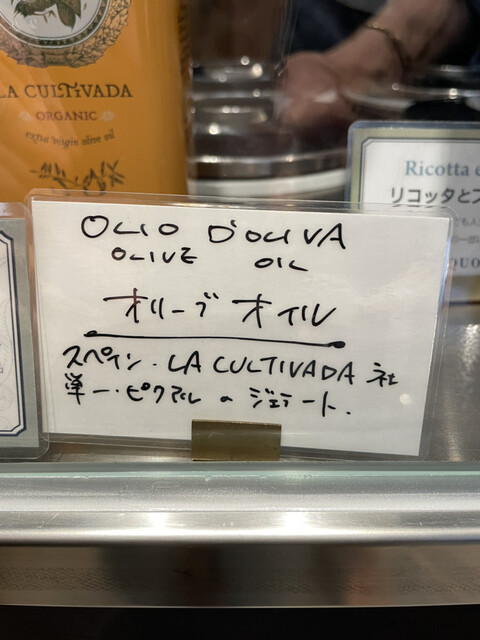 LA CULTIVADA
ORGANIC
extra virgin olive oil
Ricotta e
リコッタとフ
OLIO D'OLIVA
OLIVE OIL
オリーブ オイル
スペイン・LA CULTIVADA 社
単一・ピクアル の ジェラート.